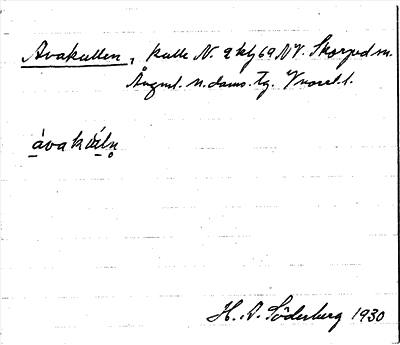 Avakullen, kulle N. 2 kbf 69 NV. Skorped sn.
Ångml. n. doms. Tg. V noret 1.
ávakúln̥
H. A. Söderberg 1930